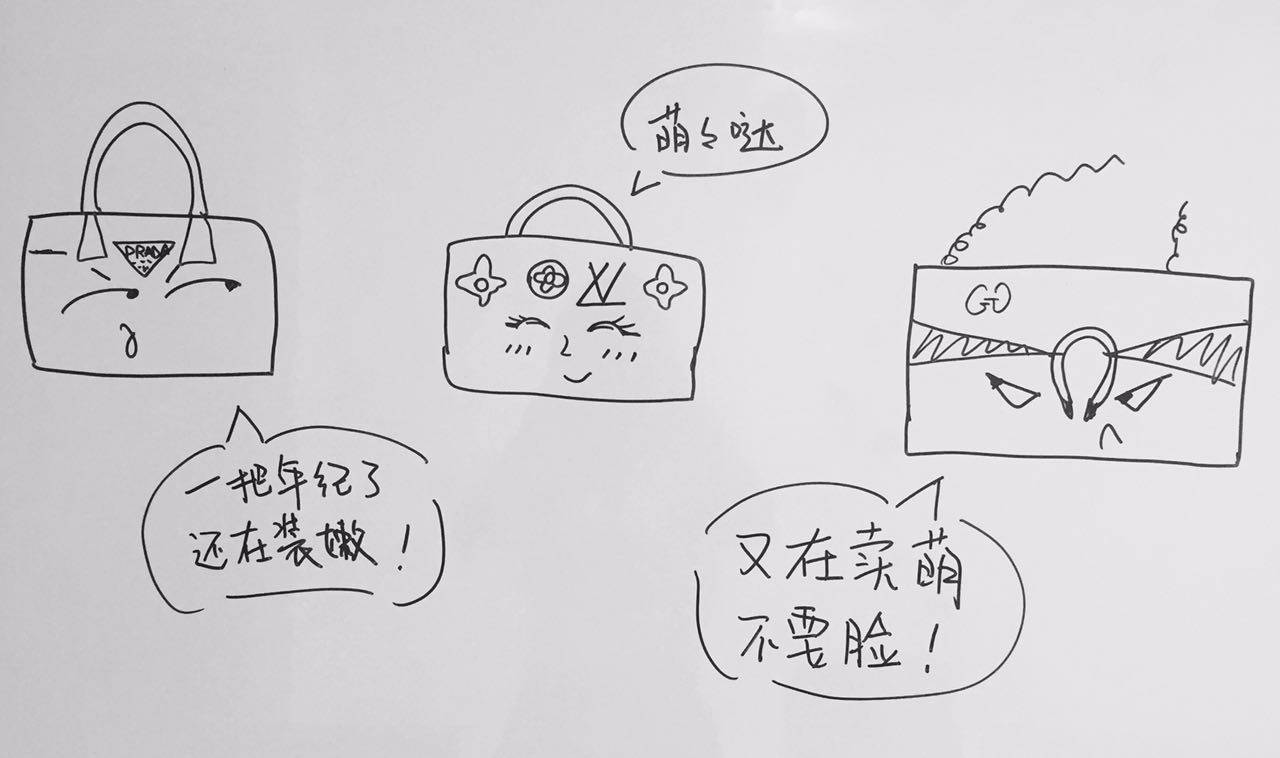 萌々哒
PRADA
XV
GG
一把年纪了
还在装嫩！
又在卖萌
不要脸！